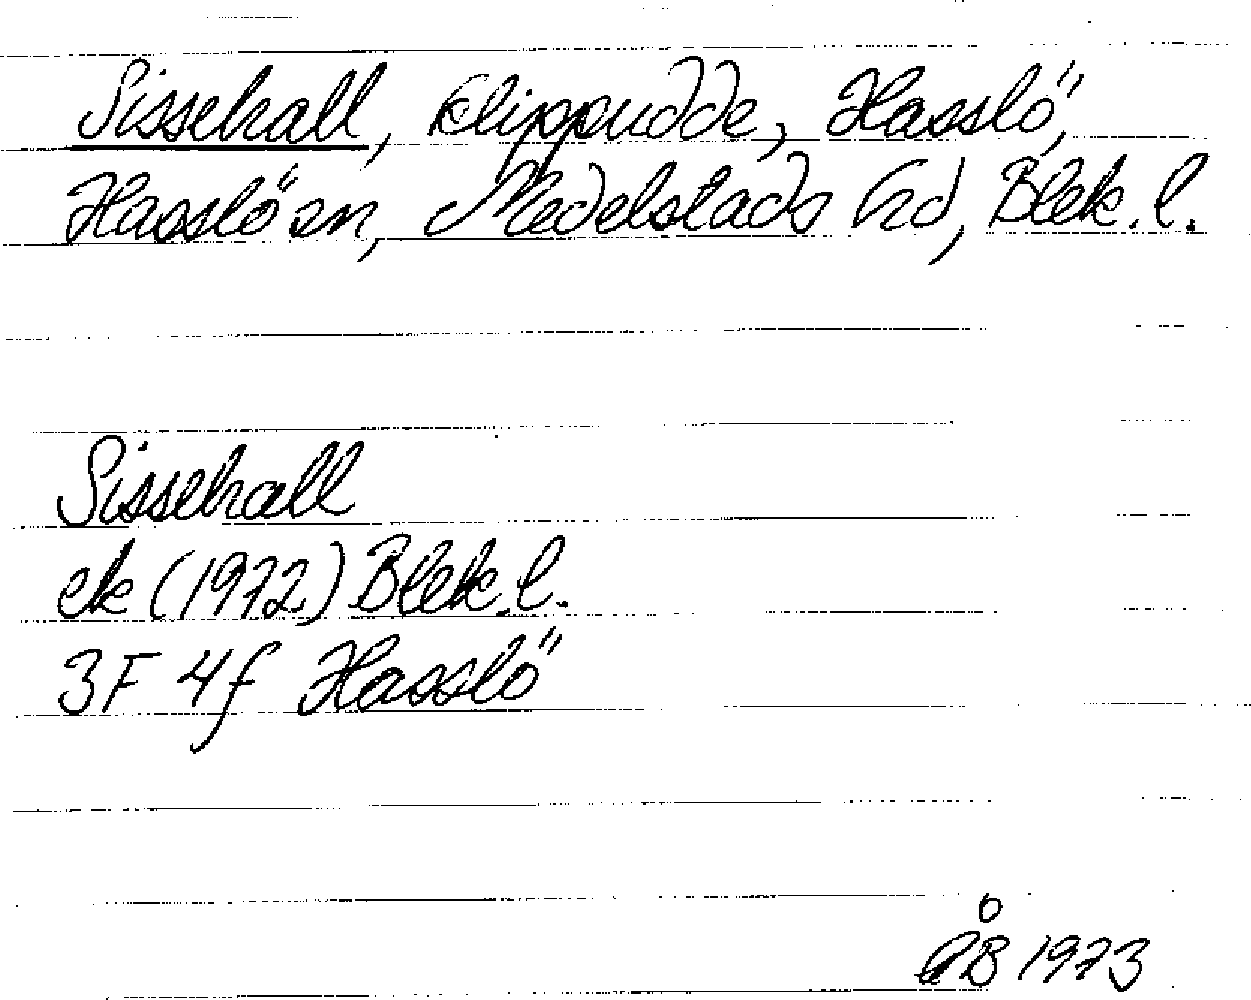 Sissehall, klippudde, Hasslö,
Hasslö sn, Medelstads hd, Blek. l.
Sissehall
ek (1972) Blek. l.
3F 4f Hasslö
ÅB 1973